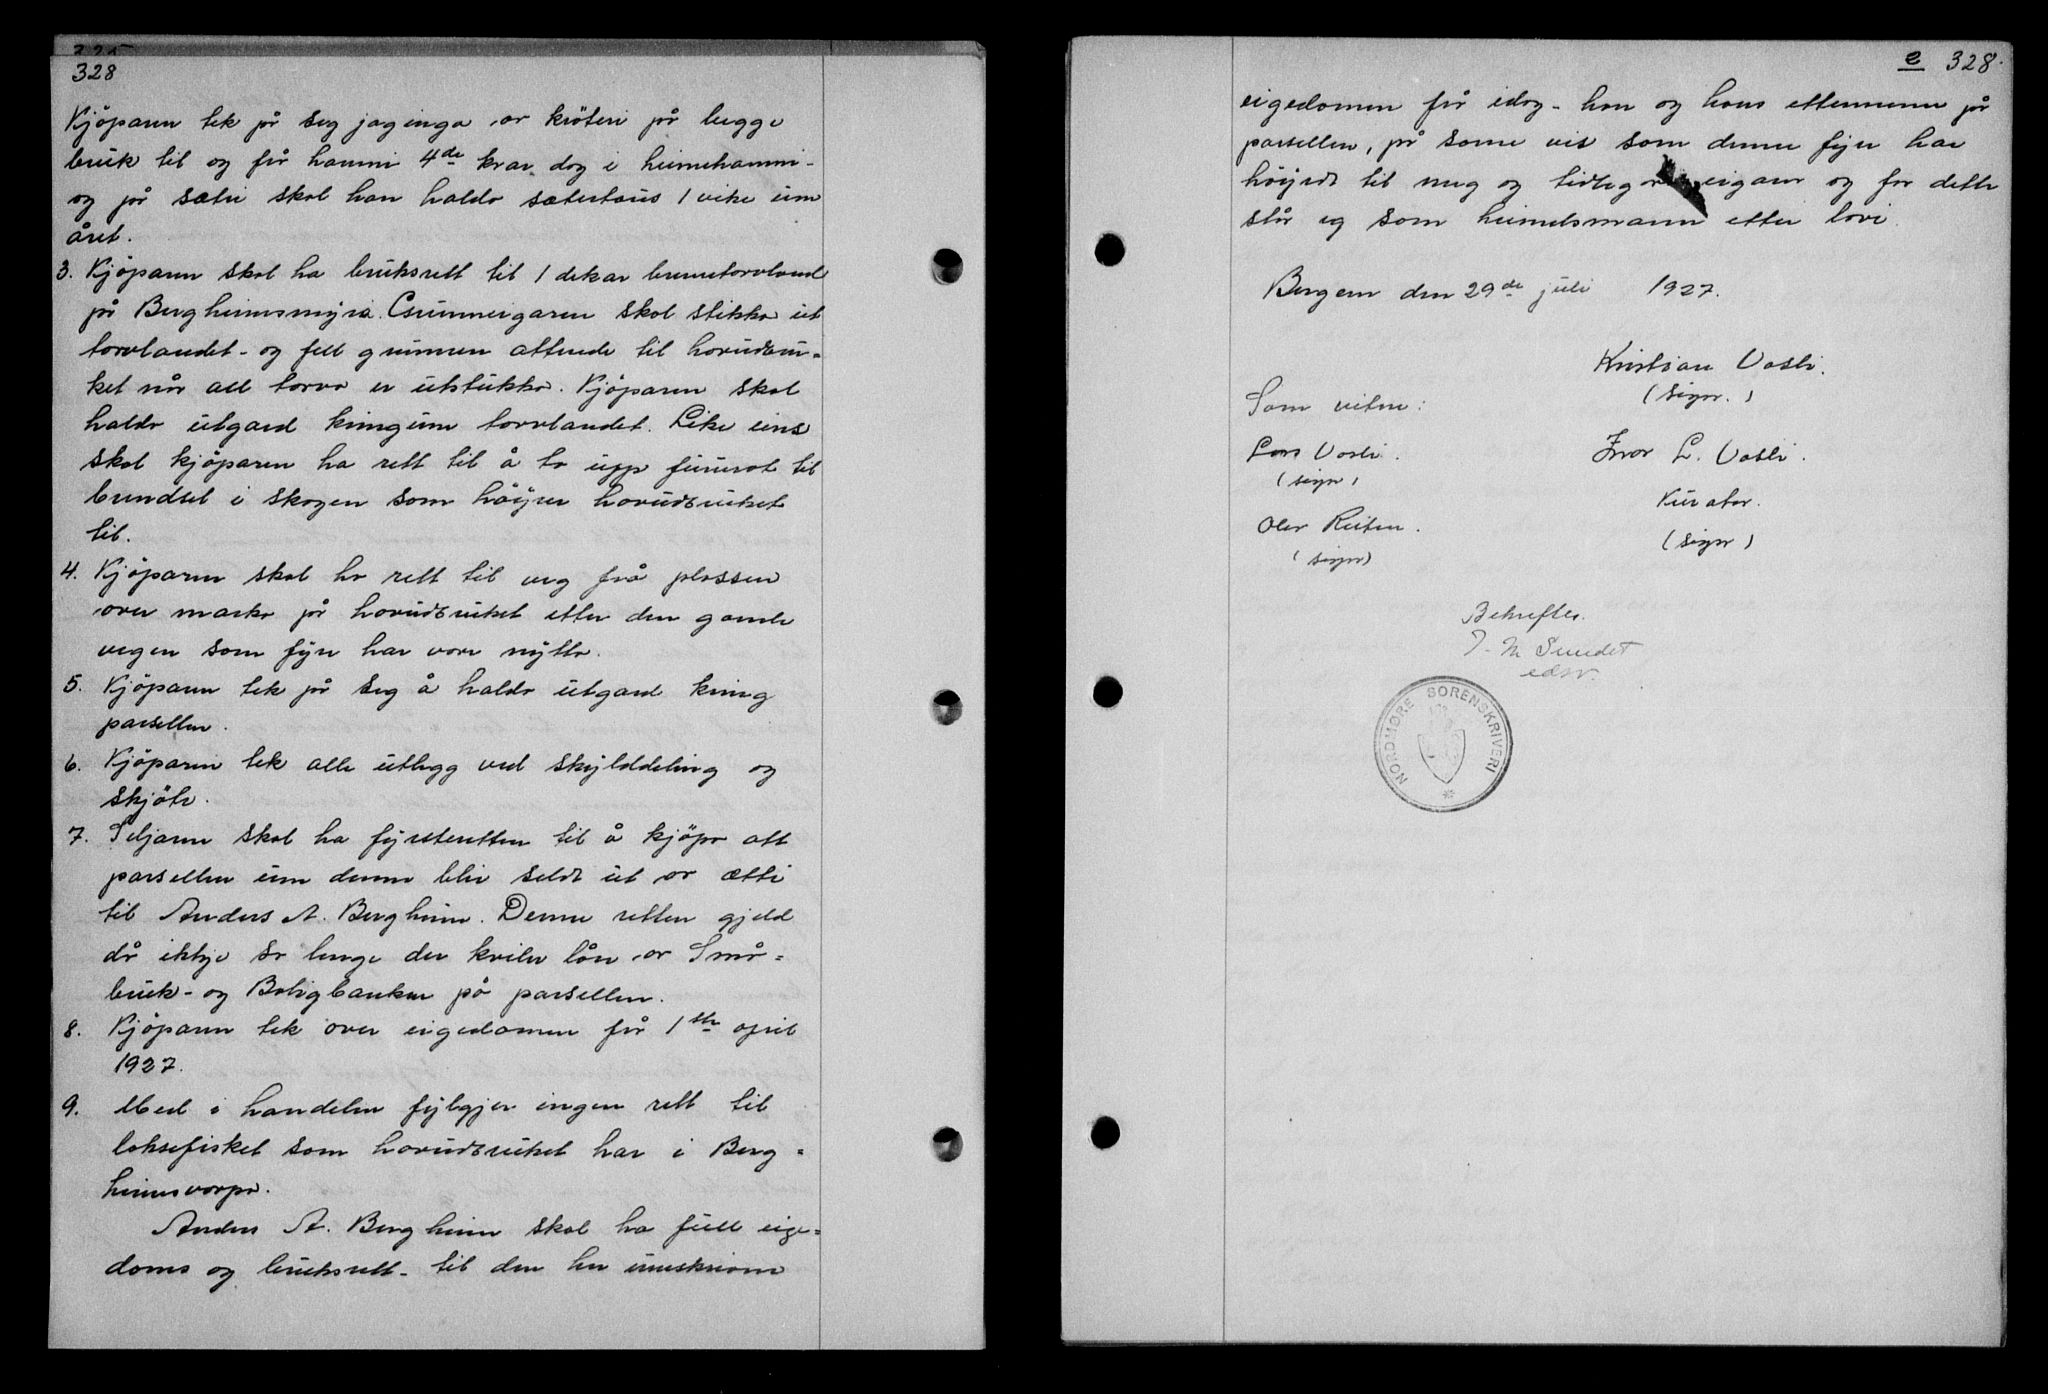 325
328
Kjöparen tek på seg jaginga av kröteri på begge
bruk til og frå hamni 4de kvar dag i heimehamni -
og på sætri skal han halda sæterhaus 1 vike um
året.
3. Kjöparen skal ha bruksrett til 1 dekar brennetorvland
på Bergheimsmyra. Grunneigaren skal stikka ut
torvlandet - og fell grunnen attende til hovudbru=
ket når all torva er utstukka. Kjöparen skal
halda utgard kringum torvlandet. Like eins
skal kjöparen ha rett til å ta upp fururot til
brendsel i skogen som höyrer hovudbruket
til.
4. Kjöparen skal ha rett til veg frå plassen
over marka på hovudbruket etter den gamle
vegen som fyrr har vore nytta.
5. Kjöparen tek på seg å halda utgard kring
parsellen.
6. Kjöparen tek alle utlegg ved skylddeling og
skjöte.
7. Seljaren skal ha fyrsteretten til å kjöpa att
parsellen um denne blir seldt ut av ætti
til Anders A. Bergheim. Denne retten gjeld
då ikkje so lenge der kviler lån av Små=
bruk- og Boligbanken på parsellen.
8. Kjöparen tek over eigedomen frå 1ste april
1927.
9. Med i handelen fylgjer ingen rett til
laksefisket som hovudbruket har i Berg=
heimsvarpa.
Anders A. Bergheim skal ha full eige=
doms og bruksrett - til den her umskrivne
2 328.
eigedomen frå idag - han og hans ettermenn på
parsellen, på same vis som denne fyrr har
höyrdt til meg og tidlegare eigarar og for dette
står eg som heimelsmann etter lovi.
Bergem den 29de juli 1927.
Kristian Vasli.
(sign.)
Som vitne:
Lars Vasli.
(sign)
Ivar L. Vasli.
Kurator.
(sign)
Olav Reiten.
(sign)
Bekreftes.
J. M. Sundet
edsv.
NORDMØRE SORENSKRIVERI